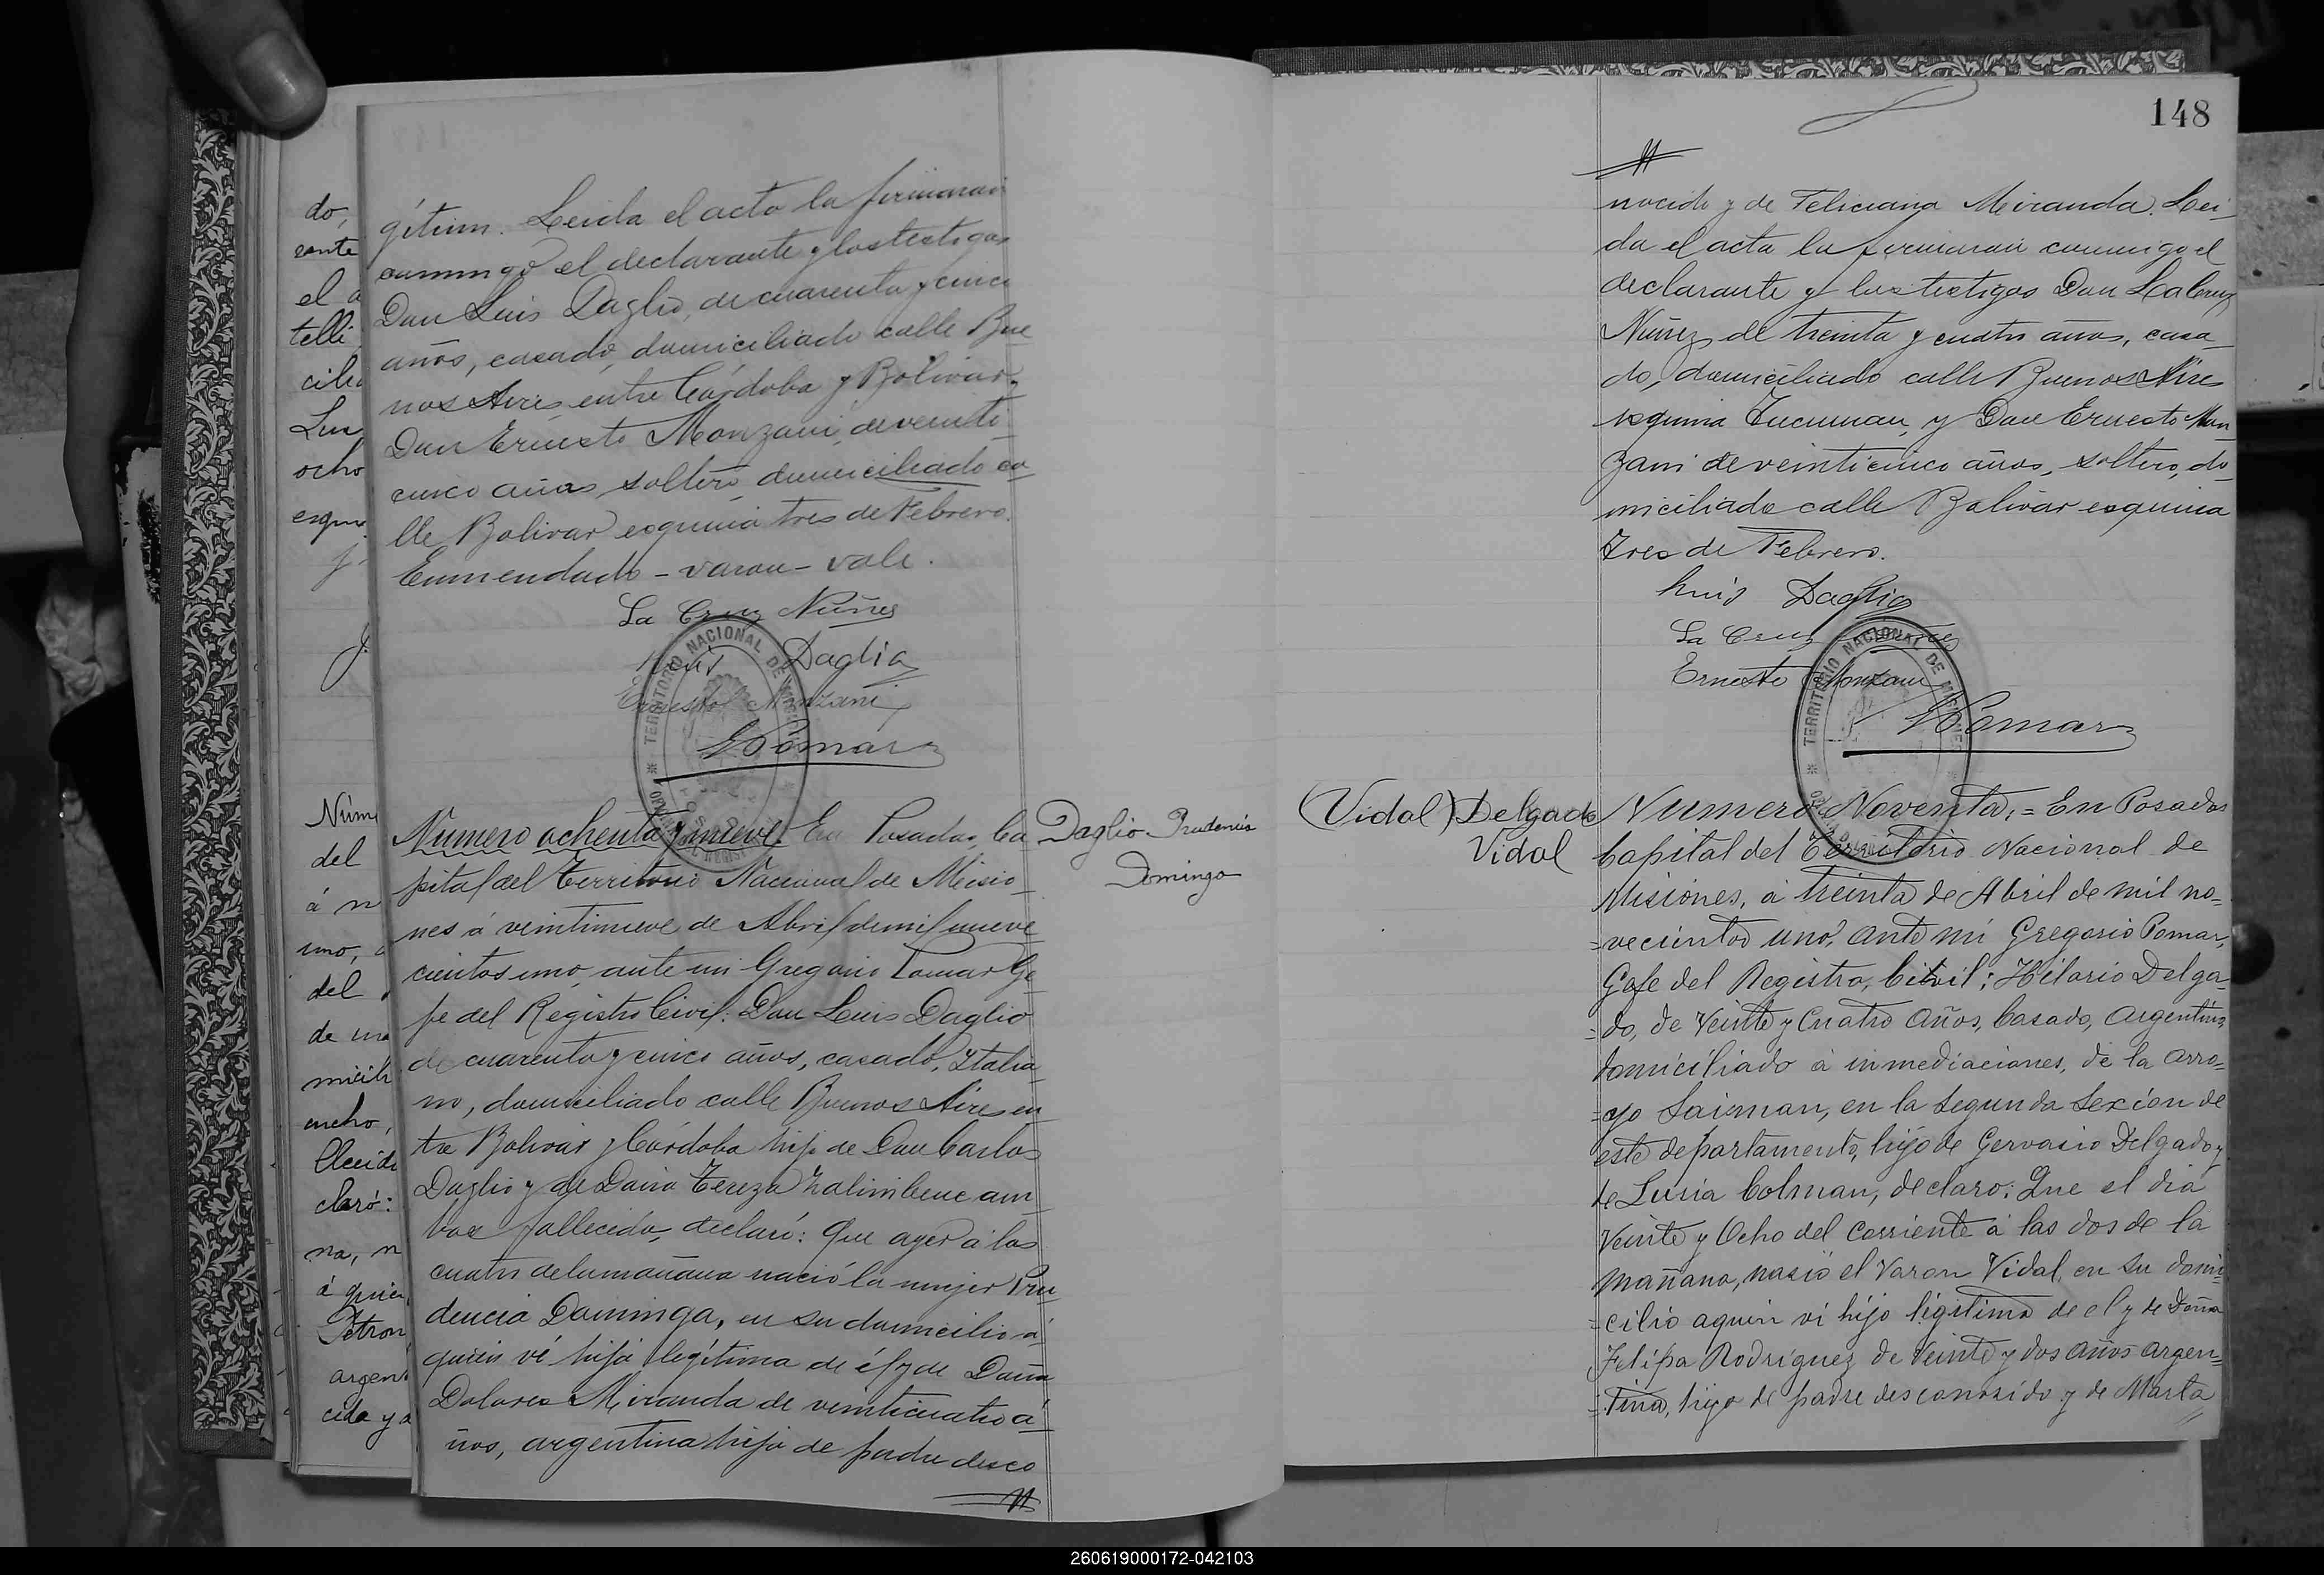 do,
rante
el a
telli
cilia
Lui
ocho
esqui
Núme
del
á n
uno, a
del
de una
micili
ancho,
lleció
claró:
na, n
á quien
Petron
argent
cida y a
gítim. Leida el acto la firmaran
conmigo el declarante y los testigos
Don Luis Daglio, de cuarenta y cinco
años, casado, domiciliado calle Bue
nos Aires entre Córdoba y Bolivar,
Don Ernesto Monzani, de veinti
cinco años, soltero, domiciliado ca
lle Bolivar esquina tres de Febrero.
Enmendado - varon - vale.
La Cruz Núñes
Luis Daglio
Ernesto Monzani
GPomar
TERRITORIO NACIONAL DE MISIONES
Número ochenta y nueve. En Posadas, Ca
pital del Territorio Nacional de Misio
nes á veintinueve de Abril de mil nueve
cientos uno, ante mi Gregorio Pomar Ge
fe del Registro Civil: Don Luis Daglio
de cuarenta y cinco años, casado, Italia
no, domiciliado calle Buenos Aires en
tre Bolivar y Córdoba hijo de Don Carlos
Daglio y de Doña Tereza Zalimbene am
bos fallecido, declaró: Que ayer á las
cuatro de la mañana nació la mujer Pru
dencia Dominga, en su domicilio á
quien vé hija legítima de él y de Doña
Dolores Miranda de veinticuatro á
ños, argentina hija de padre desco
Daglio Prudencia
Domingo
148
nocido y de Feliciana Miranda. Lei
da el acta la firmaran conmigo el
declarante y los testigos Don La Cruz
Núñez de treinta y cuatro años, casa
do, domiciliado calle Buenos Aires
esquina Tucuman, y Don Ernesto Mon
zani de veinticinco años, soltero, do
miciliado calle Bolivar esquina
Tres de Febrero.
Luis Daglio
La Cruz Núñes
Ernesto Monzani
GPomar
TERRITORIO NACIONAL DE MISIONES
(Vidal) Delgado
Vidal
Numero Noventa, = En Posadas
Capital del Territorio Nacional de
Misiones, á treinta de Abril de mil no-
=vecientos uno, ante mi Gregorio Pomar,
Gefe del Registro, Civil; Hilario Delga-
=do, de Veinte y Cuatro Años, Casado, Argentino,
domiciliado á inmediaciones, de la arro=
=yo Saiman, en la Segunda Sexion de
este departamento, hijo de Gervasio Delgado y
de Lusia Colman, declaro: Que el dia
Veinte y Ocho del Corriente á las dos de la
mañana, nasió el Varon Vidal, en su domi=
=cilio aquien vi hijo legitimo de el y de Doña
Felipa Rodriguez de Veinte y dos años argen=
=tina, hija de padre desconosido y de Marta
260619000172-042103